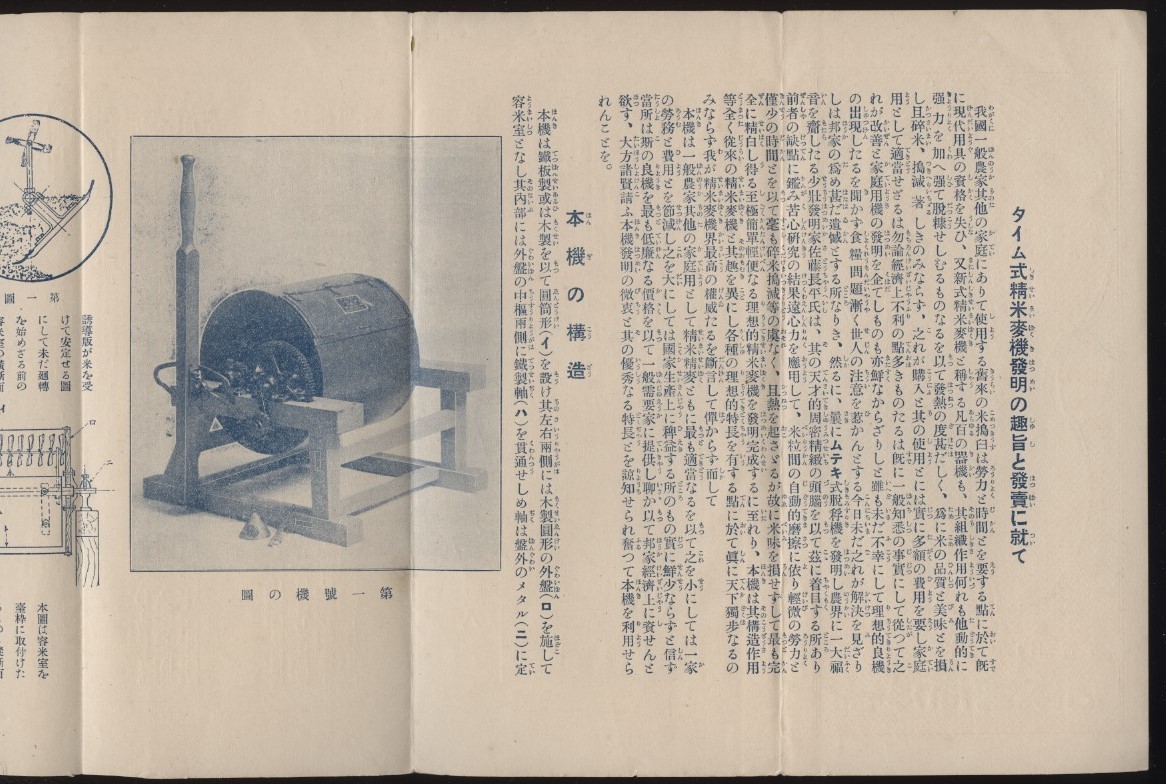 タイム式精米麥機發明の趣旨と發賣に就て
我國一般農家其他の家庭にありて使用する舊來の米搗臼は勞力と時間とを要する點に於て既
に現代用具の資格を失ひ、又新式精米麥機と稱する凡百の器機も、其組織作用何れも他動的に
强力を加へ强て脫糠せしむるものなるを以て發熱の度甚だしく、爲に米の品質と美味とを損
し且碎米、搗減、著しきのみならず、之れが購入と其の使用とには實に多額の費用を要し家庭
用として適當せざるは勿論經濟上不利の點多きものたるは既に一般知悉の事實にして從つて之
れが改善と家庭用機の發明を企てしものも亦鮮なからざりしと雖も未だ不幸にして理想的良機
の出現したるを聞かず食糧問題漸く世人の注意を惹かんとする今日未だ之れが解決を見ざり
しは邦家の爲め甚だ遺憾とする所なりき、然るに、曩にムテキ式脫稃機を發明し農界に一大福
音を齎したる少壯發明家佐藤長平氏は、其の天才的周密精緻の頭腦を以て玆に着目する所あり
前者の缺點に鑑み苦心硏究の結果遠心力を應用して、米粒間の自動的磨擦に依り輕微の勞力と
僅少の時間とを以て毫も碎米搗減等の虞なく、且熱を起さゞるが故に米味を損せずして最も完
全に精白し得る至極簡單輕便なる理想的精米麥機を發明完成するに至れり、本機は其構造作用
等全く從來の精米麥機と其趣を異にし各種の理想的特長を有する點に於て眞に天下獨步なるの
みならず我が精米麥機界最高の權威たるを斷言して憚からず而して
本機は一般農家其他の家庭用として精米精麥ともに最も適當なるを以て之を小にしては一家
の勞務と費用とを節減し之を大にしては國家生產上に稗益する所のもの實に鮮少ならずと信す
當所は斯の良機を最も低廉なる價格を以て一般需要家に提供し聊か以て邦家經濟上に資せんと
欲す、大方諸賢請ふ本機發明の微衷と其の優秀なる特長とを諒知せられ奮つて本機を利用せら
れんことを。
本機の構造
本機は鐵板製或は木製を以て圓筒形(イ)を設け其左右兩側には木製圓形の外盤(ロ)を施して
容米室となし其內部には外盤の中樞兩側に鐵製軸(ハ)を貫通せしめ軸は盤外のメタル(ニ)に定
第一號機の圖
第一圖
誘導版が米を受
けて安定せる圖
にして未だ廻轉
を始めざる前の
ロ
本圖は容米室を
臺枠に取付けた